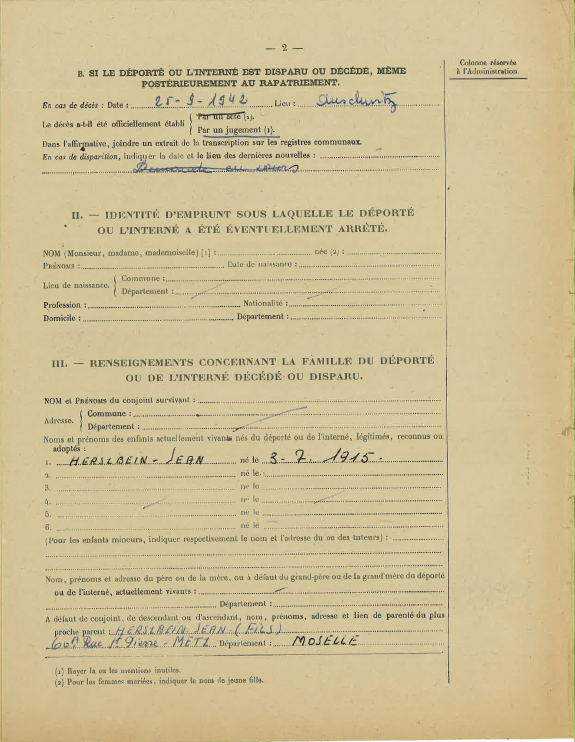 — 2 —
Colonne réservée
à l'Administration.
B. SI LE DÉPORTÉ OU L'INTERNÉ EST DISPARU OU DÉCÉDÉ, MÊME
POSTÉRIEUREMENT AU RAPATRIEMENT.
En cas de décès : Date : 25-9-1942 Lieu : Auschwitz
Le décès a-t-il été officiellement établi { Par un acte (1).
Par un jugement (1).
Dans l'affirmative, joindre un extrait de la transcription sur les registres communaux.
En cas de disparition, indiquer la date et le lieu des dernières nouvelles :
Demande en cours
II. — IDENTITÉ D'EMPRUNT SOUS LAQUELLE LE DÉPORTÉ
OU L'INTERNÉ A ÉTÉ ÉVENTUELLEMENT ARRÊTÉ.
NOM (Monsieur, madame, mademoiselle) [1] : née (2) :
PRÉNOMS : Date de naissance :
Lieu de naissance. { Commune :
Département :
Profession : Nationalité :
Domicile : Département :
III. — RENSEIGNEMENTS CONCERNANT LA FAMILLE DU DÉPORTÉ
OU DE L'INTERNÉ DÉCÉDÉ OU DISPARU.
NOM et PRÉNOMS du conjoint survivant :
Adresse. { Commune :
Département :
Noms et prénoms des enfants actuellement vivants nés du déporté ou de l'interné, légitimés, reconnus ou
adoptés :
1. HERSLBEIN - JEAN né le 3-7.1915.
2. né le
3. né le
4. né le
5. né le
6. né le
(Pour les enfants mineurs, indiquer respectivement le nom et l'adresse du ou des tuteurs) :
Nom, prénoms et adresse du père ou de la mère, ou à défaut du grand-père ou de la grand'mère du déporté
ou de l'interné, actuellement vivants :
Département :
A défaut de conjoint, de descendant ou d'ascendant, nom, prénoms, adresse et lien de parenté du plus
proche parent : HERSLBEIN JEAN (FILS)
60A Rue St Pierre - METZ Département : MOSELLE
(1) Rayer la ou les mentions inutiles.
(2) Pour les femmes mariées, indiquer le nom de jeune fille.